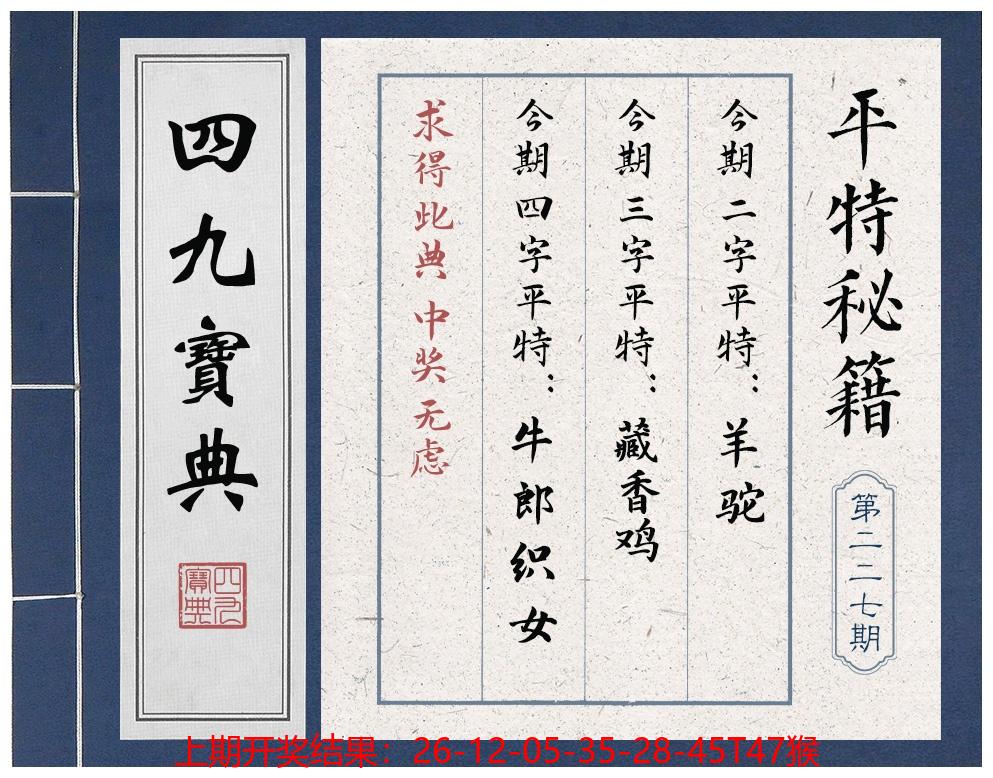 平特秘籍
第二二七期
今期二字平特：羊驼
今期三字平特：藏香鸡
今期四字平特：牛郎织女
求得此典 中奖无虑
四九寶典
四九寶典
上期开奖结果：26-12-05-35-28-45T47猴